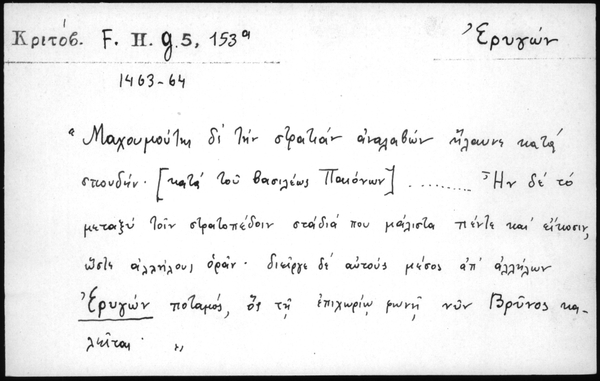 Κριτόβ. F. H. g. 5, 153ᵃ
Ἐρυγών
1463-64
"Μαχουμούτης δὲ τὴν στρατιὰν ἀναλαβὼν ἤλαυνε κατὰ
σπουδήν· [κατὰ τοῦ βασιλέως Παιόνων] .......... Ἦν δὲ τὸ
μεταξὺ τοῖν στρατοπέδοιν στάδιά που μάλιστα πέντε καὶ εἴκοσιν,
ὥστε ἀλλήλους ὁρᾶν· διεῖργε δὲ αὐτοὺς μέσος ἀπ' ἀλλήλων
Ἐρυγών ποταμός, ὃς τῇ ἐπιχωρίῳ φωνῇ νῦν Βρῦνος κα-
λεῖται· "